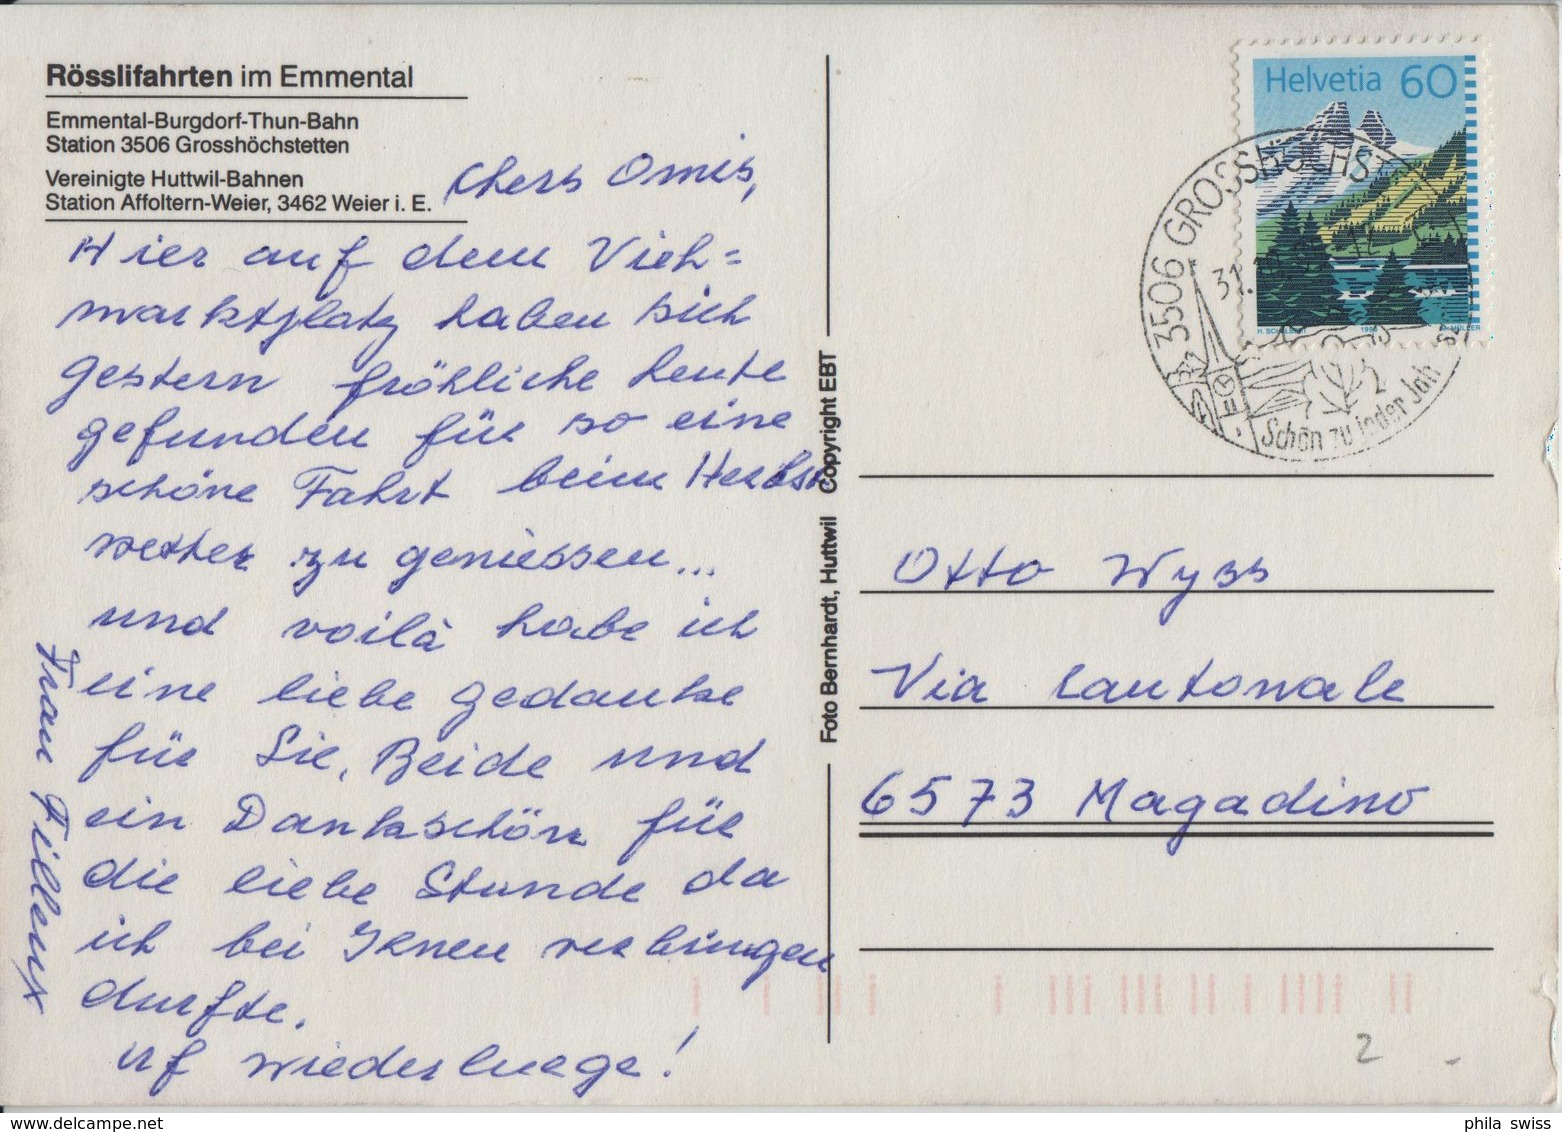 Rösslifahrten im Emmental
Emmental-Burgdorf-Thun-Bahn
Station 3506 Grosshöchstetten
Vereinigte Huttwil-Bahnen
Station Affoltern-Weier, 3462 Weier i. E.
Chers Omis,
Hier auf dem Vieh=
marktplatz haben sich
gestern fröhliche Leute
gefunden für so eine
schöne Fahrt beim Herbst
wetter zu geniessen...
und voilà habe ich
eine liebe Gedanke
für Sie, Beide und
ein Dankschön für
die liebe Stunde da
ich bei Ihnen verbringen
durfte.
uf wiederluege!
Frau
Foto Bernhardt, Huttwil Copyright EBT
Helvetia 60
H. SCHELBERT 1993 M. MÜLLER
3506 GROSSHÖCHST
31.
Schön zu jeder Jah
Otto Wyss
Via Cantonale
6573 Magadino
2
phila swiss